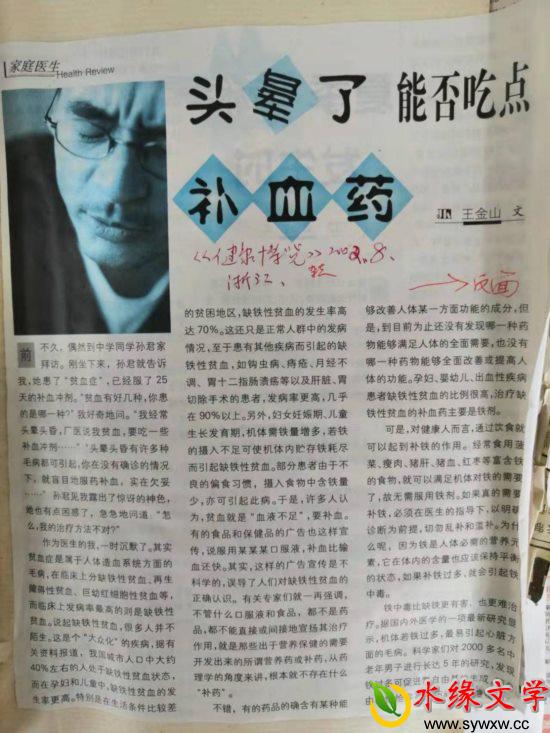 家庭医生
Health Review
头晕了 能否吃点
补血药
王金山 文
《健康博览》
浙江、
→反面
前不久，偶然到中学同学孙君家
拜访。刚坐下来，孙君就告诉
我，她患了“贫血症”，已经服了25
天的补血冲剂。“贫血有好几种，你患
的是哪一种？”我好奇地问。“我经常
头晕头昏，厂医说我贫血，要吃一些
补血冲剂……”“头晕头昏有许多种
毛病都可引起，你在没有确诊的情况
下，就盲目地服药补血，实在欠妥
……”孙君见我露出了惊讶的神色，
她也有点困惑了，急急地问道：“怎
么，我的治疗方法不对？”
作为医生的我，一时沉默了。其实
贫血症是属于人体造血系统方面的
毛病，在临床上分缺铁性贫血、再生
障碍性贫血、巨幼红细胞性贫血等，
而临床上发病率最高的则是缺铁性
贫血。说起缺铁性贫血，很多人并不
陌生。这是个“大众化”的疾病，据有
关资料报道，我国城市人口中大约
40%左右的人处于缺铁性贫血状态，
而在孕妇和儿童中，缺铁性贫血的发
生率更高。特别是在生活条件比较差
的贫困地区，缺铁性贫血的发生率高
达70%。这还只是正常人群中的发病
情况，至于患有其他疾病而引起的缺
铁性贫血，如钩虫病、痔疮、月经不
调、胃十二指肠溃疡等以及肝脏、胃
切除手术的患者，发病率更高，几乎
在90%以上。另外，妇女妊娠期、儿童
生长发育期，机体需铁量增多，若铁
的摄入不足可使机体内贮存铁耗尽
而引起缺铁性贫血。部分患者由于不
良的偏食习惯，摄入食物中含铁量
少，亦可引起此病。于是，许多人认
为，贫血就是“血液不足”，要补血。
有的食品和保健品的广告也这样宣
传，说服用某某某口服液，补血比输
血还快。其实，这样的广告宣传是不
科学的，误导了人们对缺铁性贫血的
正确认识。有关专家们就一再强调，
不管什么口服液和食品，都不是药
品，都不能直接或间接地宣扬其治疗
作用，就是那些出于营养保健的需要
开发出来的所谓营养药或补药，从药
理学的角度来讲，根本就不存在什么
“补药”。
不错，有的药品的确含有某种能
够改善人体某一方面功能的成分，但
是，到目前为止还没有发现哪一种药
物能够满足人体的全面需要，也没有
哪一种药物能够全面改善或提高人
体的功能。孕妇、婴幼儿、出血性疾病
患者缺铁性贫血的比例很高，治疗缺
铁性贫血的补血药主要是铁剂。
可是，对健康人而言，通过饮食就
可以起到补铁的作用。经常食用菠
菜、瘦肉、猪肝、猪血、红枣等富含铁
的食物，就可以满足机体对铁的需要
了，故无需服用铁剂。如果真的需要
补铁，必须在医生的指导下，以明确
诊断为前提，切勿乱补和滥补。为什
么呢，因为铁是人体必需的营养元
素，它在体内的含量也应该保持平衡
的状态，如果补铁过多，就会引起铁
中毒。
铁中毒比缺铁更有害，也更难治
疗。据国内外医学的一项最新研究显
示，机体若铁过多，最易引起心脏方
面的毛病。科学家们对2000多名中
老年男子进行长达5年的研究，发现
铁过多可促进
水缘文学
www.sywxw.cc